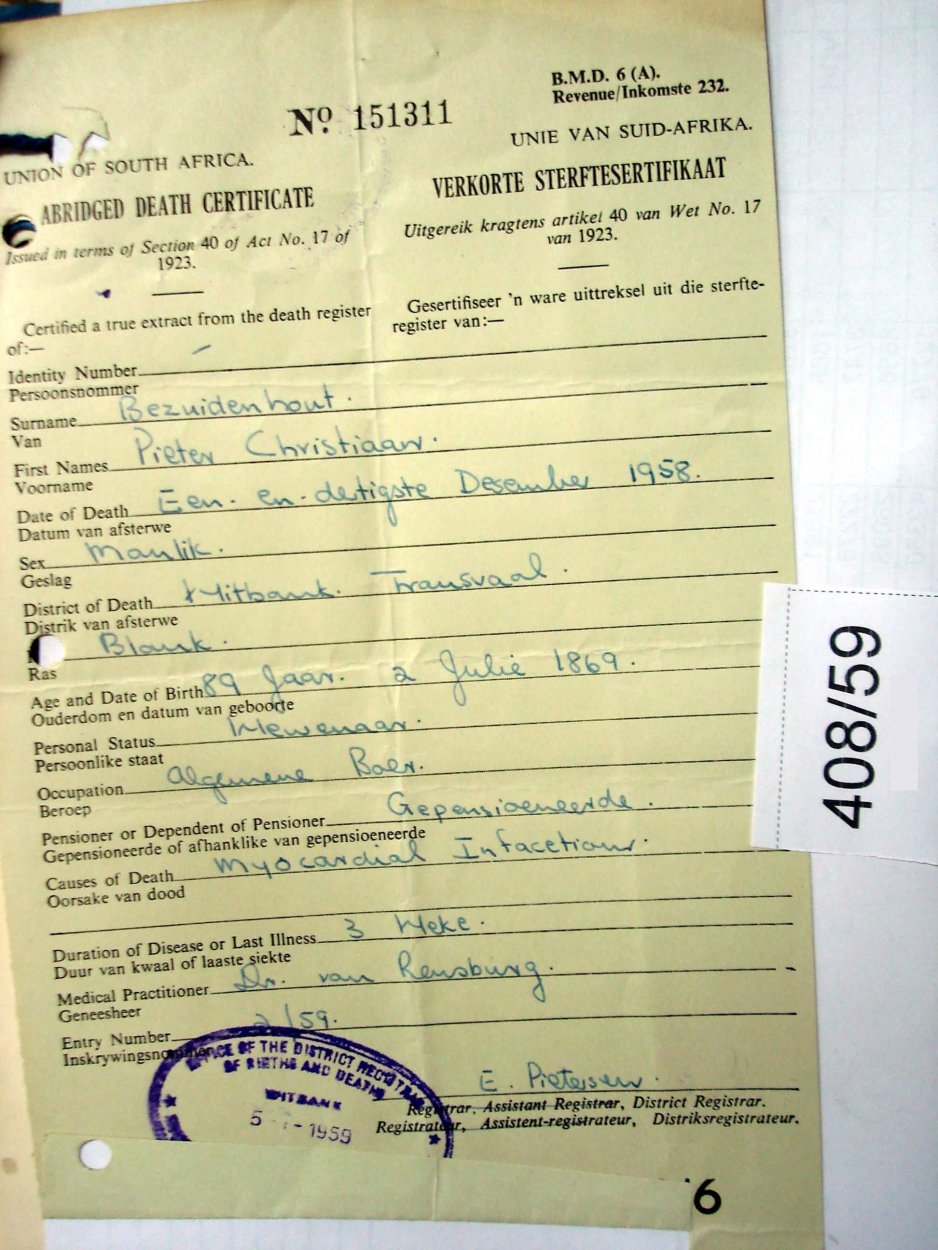 B.M.D. 6 (A).
Revenue/Inkomste 232.
No 151311
UNION OF SOUTH AFRICA.
UNIE VAN SUID-AFRIKA.
ABRIDGED DEATH CERTIFICATE
VERKORTE STERFTESERTIFIKAAT
Issued in terms of Section 40 of Act No. 17 of
1923.
Uitgereik kragtens artikel 40 van Wet No. 17
van 1923.
Certified a true extract from the death register
of:—
Gesertifiseer 'n ware uittreksel uit die sterfte-
register van:—
Identity Number
Persoonsnommer
Surname Bezuidenhout.
Van
First Names Pieter Christiaan.
Voorname
Date of Death Een-en-dertigste Desember 1958.
Datum van afsterwe
Sex Manlik.
Geslag
District of Death Witbank. Transvaal.
Distrik van afsterwe
Blank.
Ras
Age and Date of Birth 89 Jaar. 2 Julie 1869.
Ouderdom en datum van geboorte
Personal Status Wewenaar.
Persoonlike staat
Occupation Algemene Boer.
Beroep
Pensioner or Dependent of Pensioner Gepensioeneerde.
Gepensioneerde of afhanklike van gepensioeneerde
Causes of Death Myocardial Infacetion.
Oorsake van dood
Duration of Disease or Last Illness 3 Weke.
Duur van kwaal of laaste siekte
Medical Practitioner Dr. van Rensburg.
Geneesheer
Entry Number 2/59.
Inskrywingsnommer
OFFICE OF THE DISTRICT REGISTRAR
OF BIRTHS AND DEATHS
WITBANK
5 -1- 1959
E. Pietersen.
Registrar, Assistant Registrar, District Registrar.
Registrateur, Assistent-registrateur, Distriksregistrateur.
408/59
6